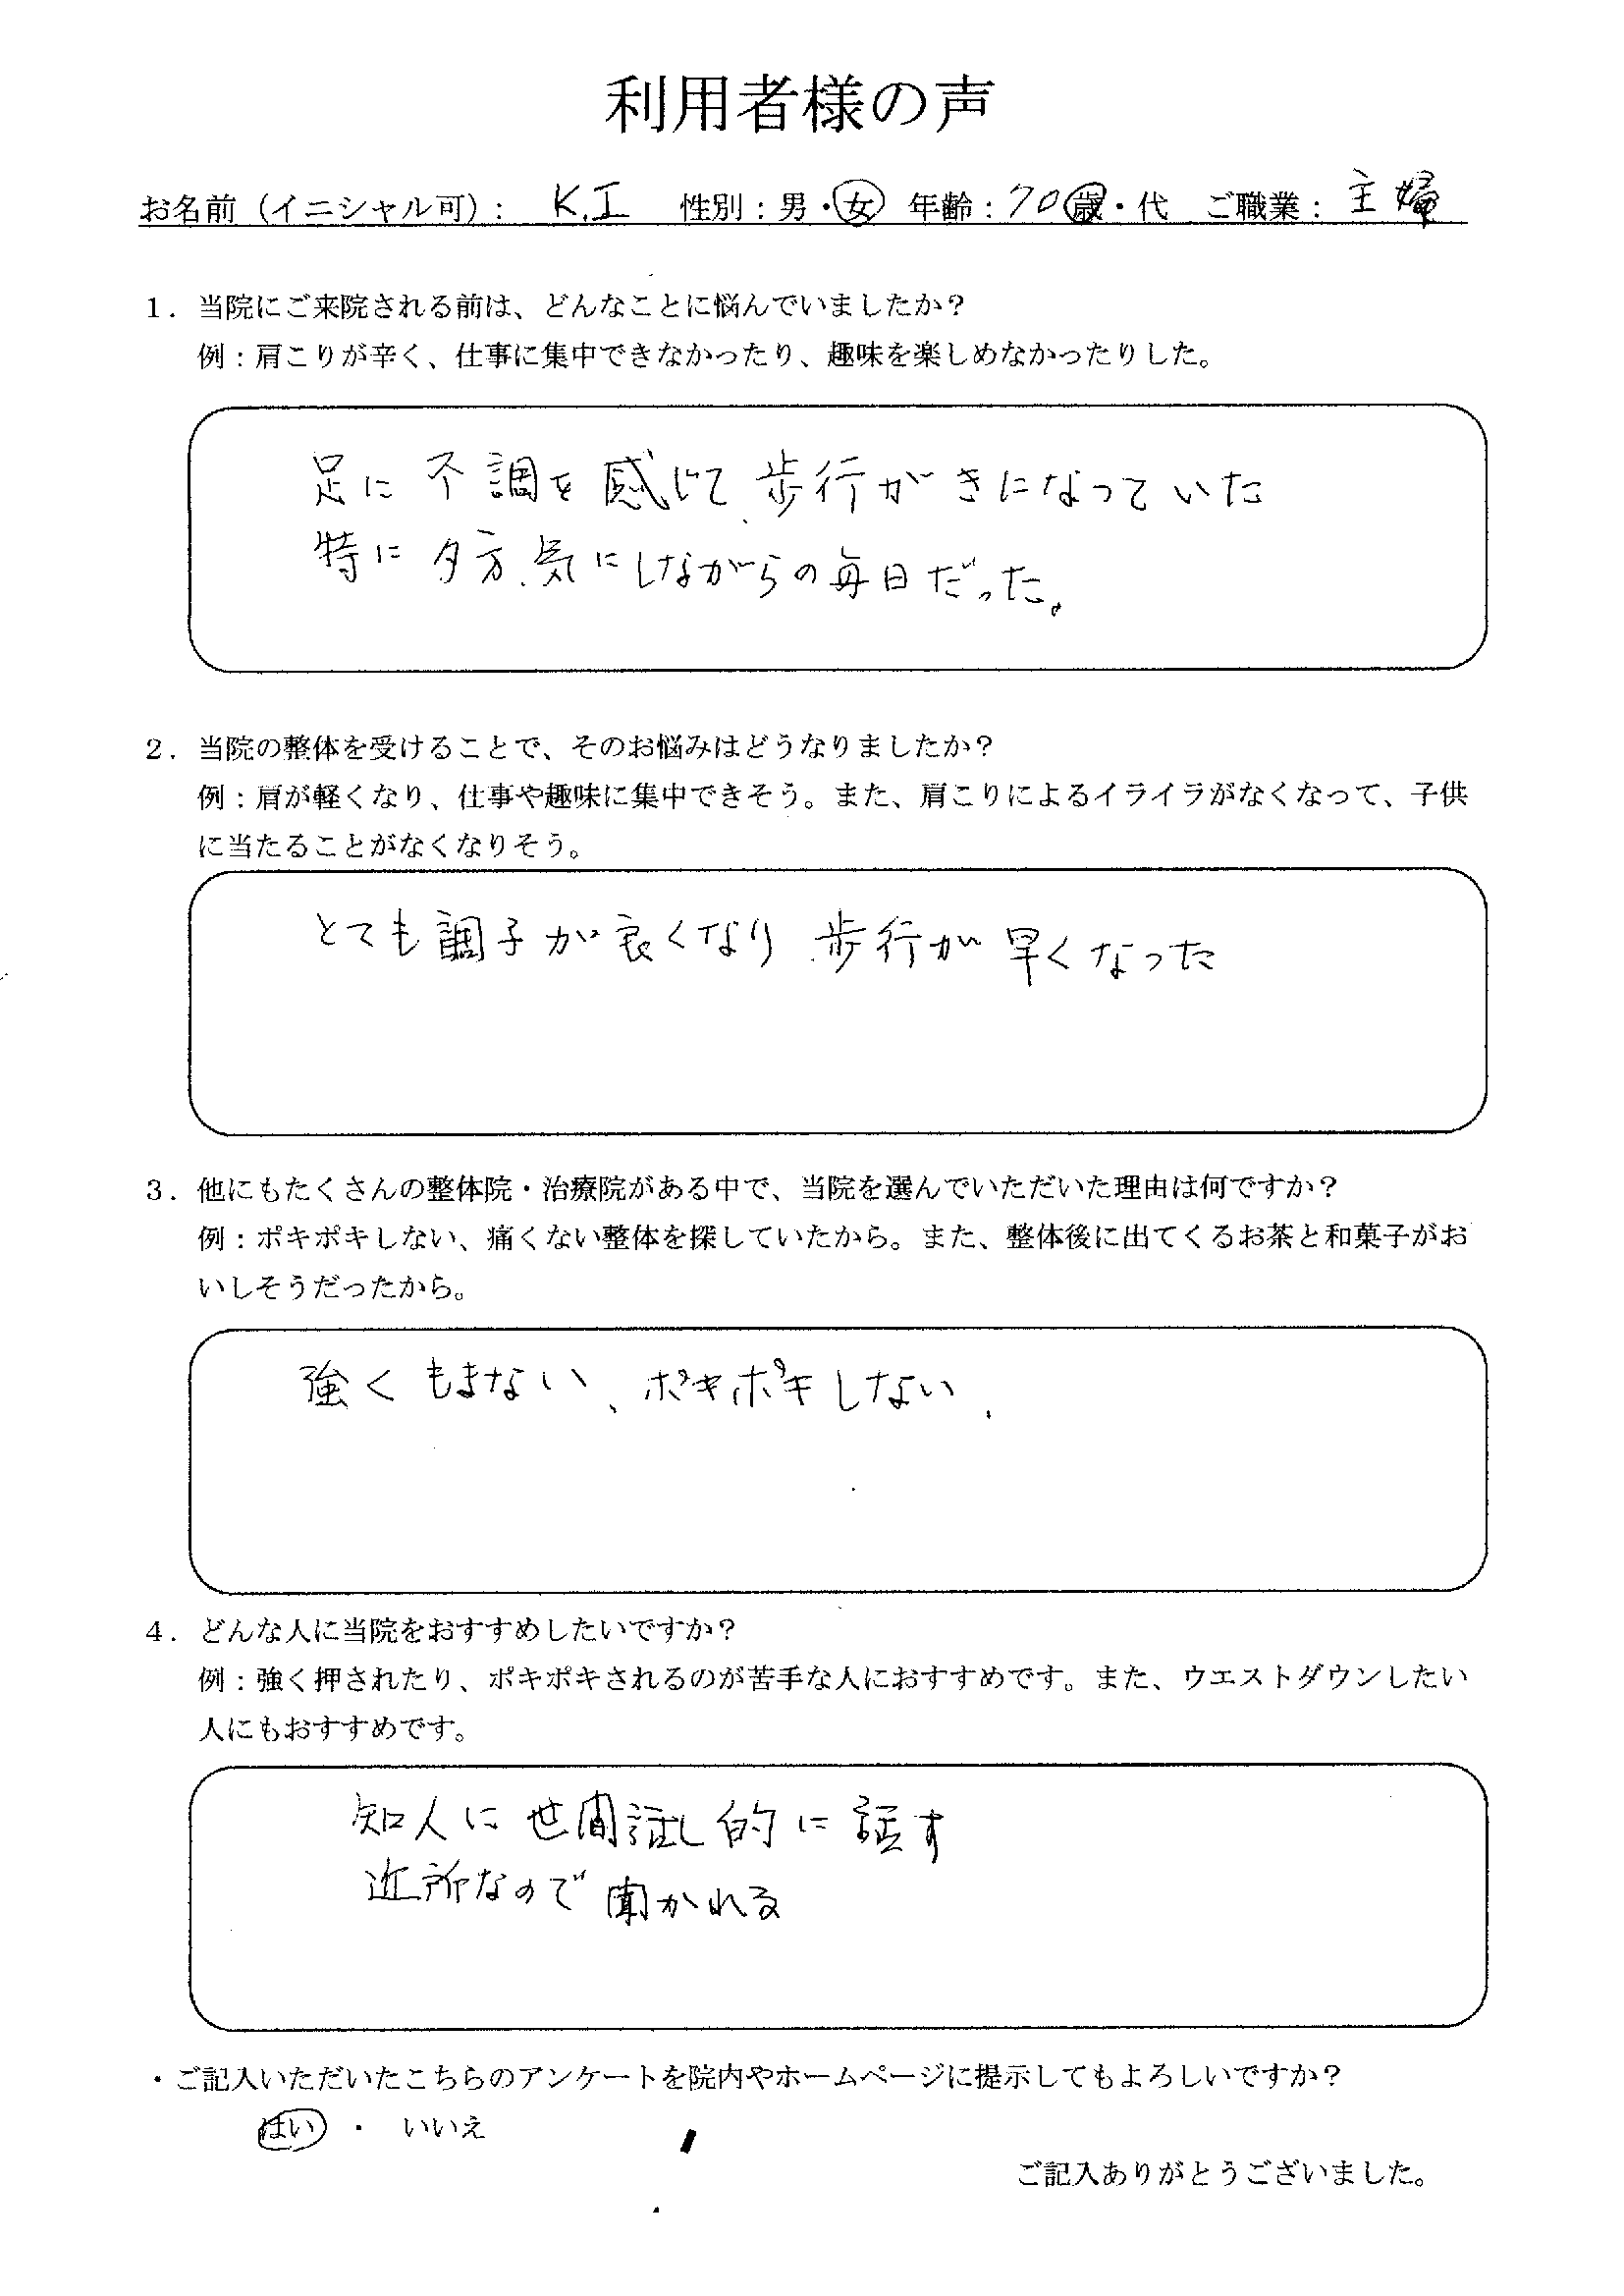 利用者様の声
お名前（イニシャル可）： K.I 性別：男・女 年齢：70歳・代 ご職業：主婦
１．当院にご来院される前は、どんなことに悩んでいましたか？
例：肩こりが辛く、仕事に集中できなかったり、趣味を楽しめなかったりした。
足に不調を感じて、歩行がきになっていた
特に夕方、気にしながらの毎日だった。
２．当院の整体を受けることで、そのお悩みはどうなりましたか？
例：肩が軽くなり、仕事や趣味に集中できそう。また、肩こりによるイライラがなくなって、子供
に当たることがなくなりそう。
とても調子が良くなり、歩行が早くなった
３．他にもたくさんの整体院・治療院がある中で、当院を選んでいただいた理由は何ですか？
例：ポキポキしない、痛くない整体を探していたから。また、整体後に出てくるお茶と和菓子がお
いしそうだったから。
強くもまない、ポキポキしない、
４．どんな人に当院をおすすめしたいですか？
例：強く押されたり、ポキポキされるのが苦手な人におすすめです。また、ウエストダウンしたい
人にもおすすめです。
知人に世間話し的に話す
近所なので聞かれる
・ご記入いただいたこちらのアンケートを院内やホームページに提示してもよろしいですか？
はい ・ いいえ
ご記入ありがとうございました。